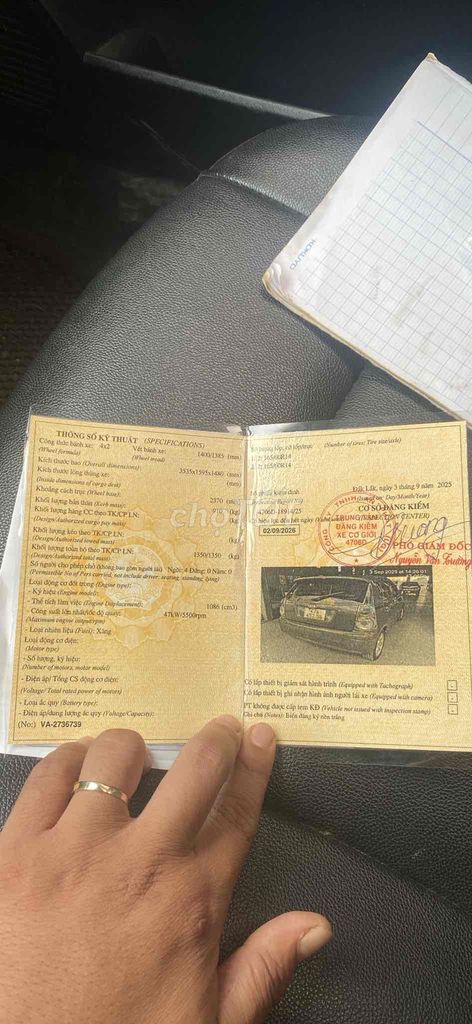 THÔNG SỐ KỸ THUẬT (SPECIFICATIONS)
Công thức bánh xe: 4x2 Vết bánh xe: 1400/1385 (mm)
(Wheel formula) (Wheel tread)
Kích thước bao (Overall dimensions) 3535x1595x1480 (mm)
Kích thước lòng thùng xe: (mm)
(Inside dimensions of cargo deck)
Khoảng cách trục (Wheel base): 2370 (mm)
Khối lượng bản thân (Kerb mass): (kg)
Khối lượng hàng CC theo TK/CP LN: (kg)
(Design/Authorized cargo pay mass)
Khối lượng kéo theo TK/CP LN: (kg)
(Design/Authorized towed mass)
Khối lượng toàn bộ theo TK/CP LN: 1350/1350 (kg)
(Design/Authorized total mass)
Số người cho phép chở (không bao gồm người lái) Ngồi: 4 Đứng: 0 Nằm: 0
(Permissible No of Pers carried, not include driver: seating, standing, lying)
Loại động cơ đốt trong (Engine type):
- Ký hiệu (Engine model):
- Thể tích làm việc (Engine Displacement): 1086 (cm3)
- Công suất lớn nhất/tốc độ quay: 47kW/5500rpm
(Maximum engine output/rpm)
- Loại nhiên liệu (Fuel): Xăng
Loại động cơ điện:
(Motor type)
- Số lượng, ký hiệu:
(Number of motors, motor model)
- Điện áp/ Tổng CS động cơ điện:
(Voltage/ Total rated power of motors)
- Loại ắc quy (Battery type):
- Điện áp/dung lượng ắc quy (Voltage/Capacity):
(No:) VA-2736739
Số lượng lốp, cỡ lốp/trục (Number of tires; Tire size/axle)
1: 2; 165/60R14
2: 2; 165/60R14
Số phiếu kiểm định
4706D-18914/25
Có hiệu lực đến hết ngày
02/09/2026
Đắk Lắk, ngày 3 tháng 9 năm 2025
(Issued on: Day/Month/Year)
CƠ SỞ ĐĂNG KIỂM
(INSPECTION CENTER)
TRUNG TÂM
ĐĂNG KIỂM
XE CƠ GIỚI
4706D
PHÓ GIÁM ĐỐC
Nguyễn Văn Trường
3 Sep 2025 at 14:26:01
Có lắp thiết bị giám sát hành trình (Equipped with Tachograph)
Có lắp thiết bị ghi nhận hình ảnh người lái xe (Equipped with camera)
PT không được cấp tem KĐ (Vehicle not issued with inspection stamp)
Ghi chú (Notes): Biển đăng ký nền trắng